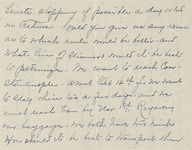 Lucite, stopping if possible a day or two
in Athens. Could you give me any idea
as to which route would be better and
what line of steamers would it be best
to patronize. We want to reach Con-
stantinople about Oct 12th, for we want
to stay there six or five days and we
must reach Cairo by Nov 1st. Regarding
our baggage. We both have two trunks
How would it be best to transport them